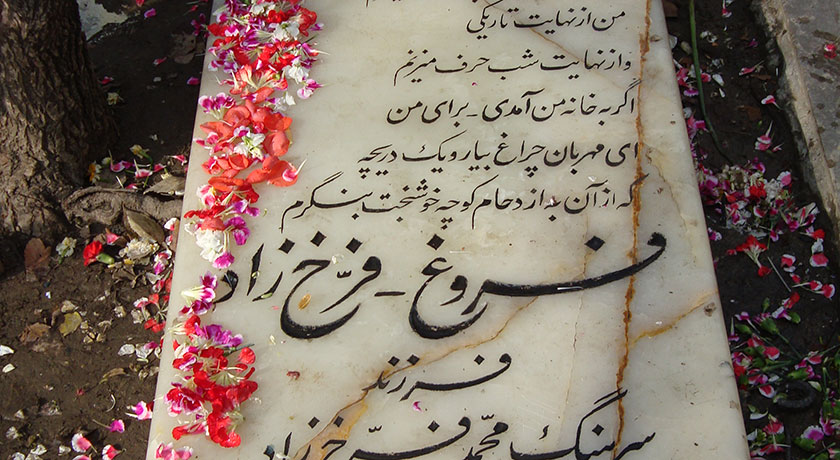 من از نهایت تاریکی
و از نهایت شب حرف میزنم
اگر به خانه من آمدی - برای من
ای مهربان چراغ بیار و یک دریچه
که از آن به ازدحام کوچه خوشبخت بنگرم
فروغ - فرّخ زاد
فرزند
سرهنگ محمّد فرّخ زاد